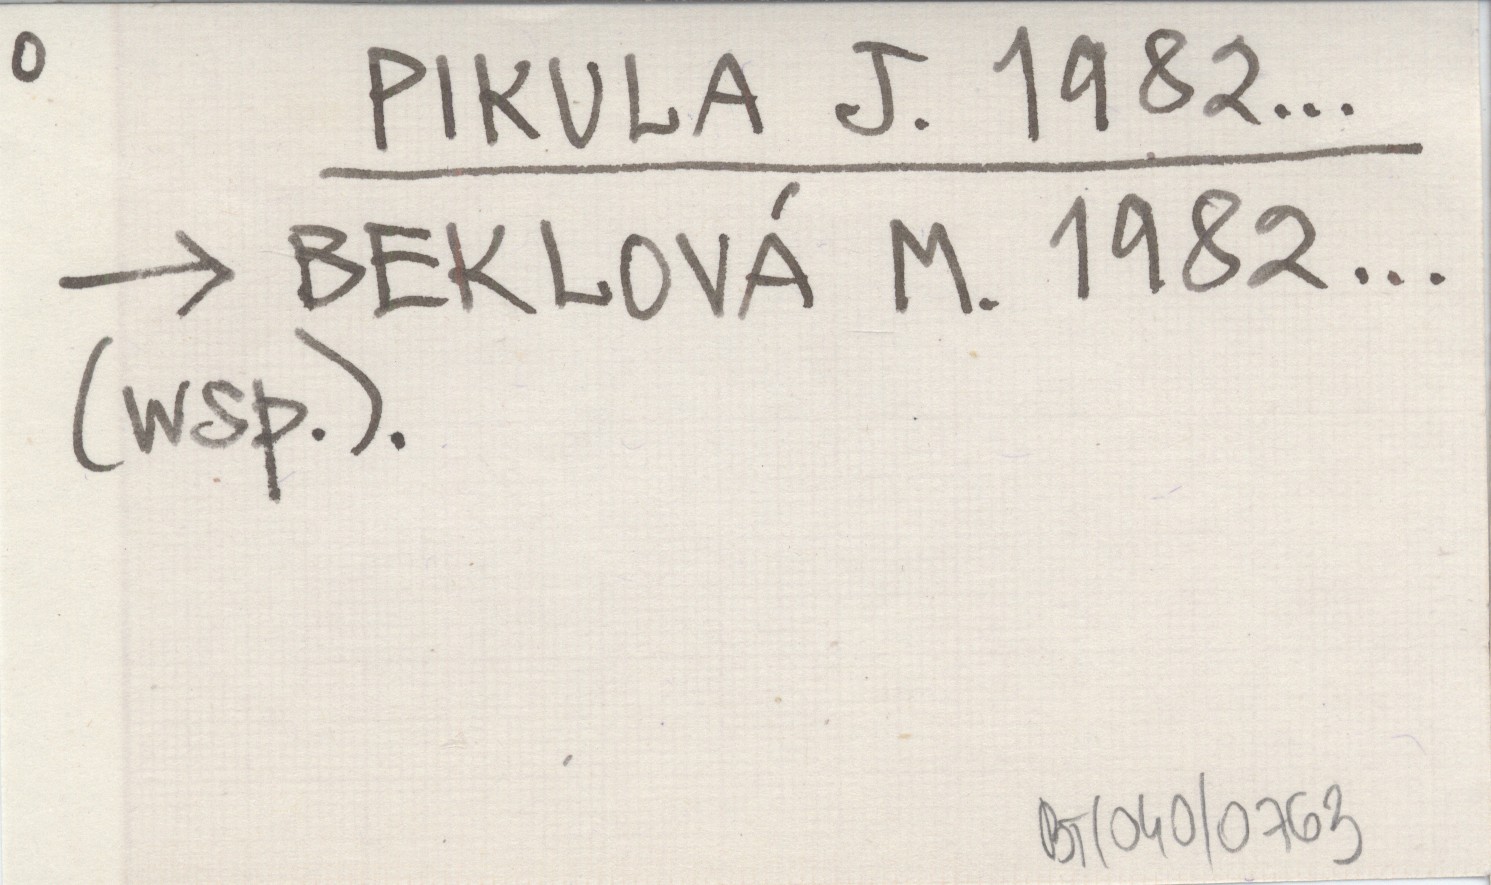 0
PIKULA J. 1982...
→ BEKLOVÁ M. 1982...
(wsp.).
BT/040/0763